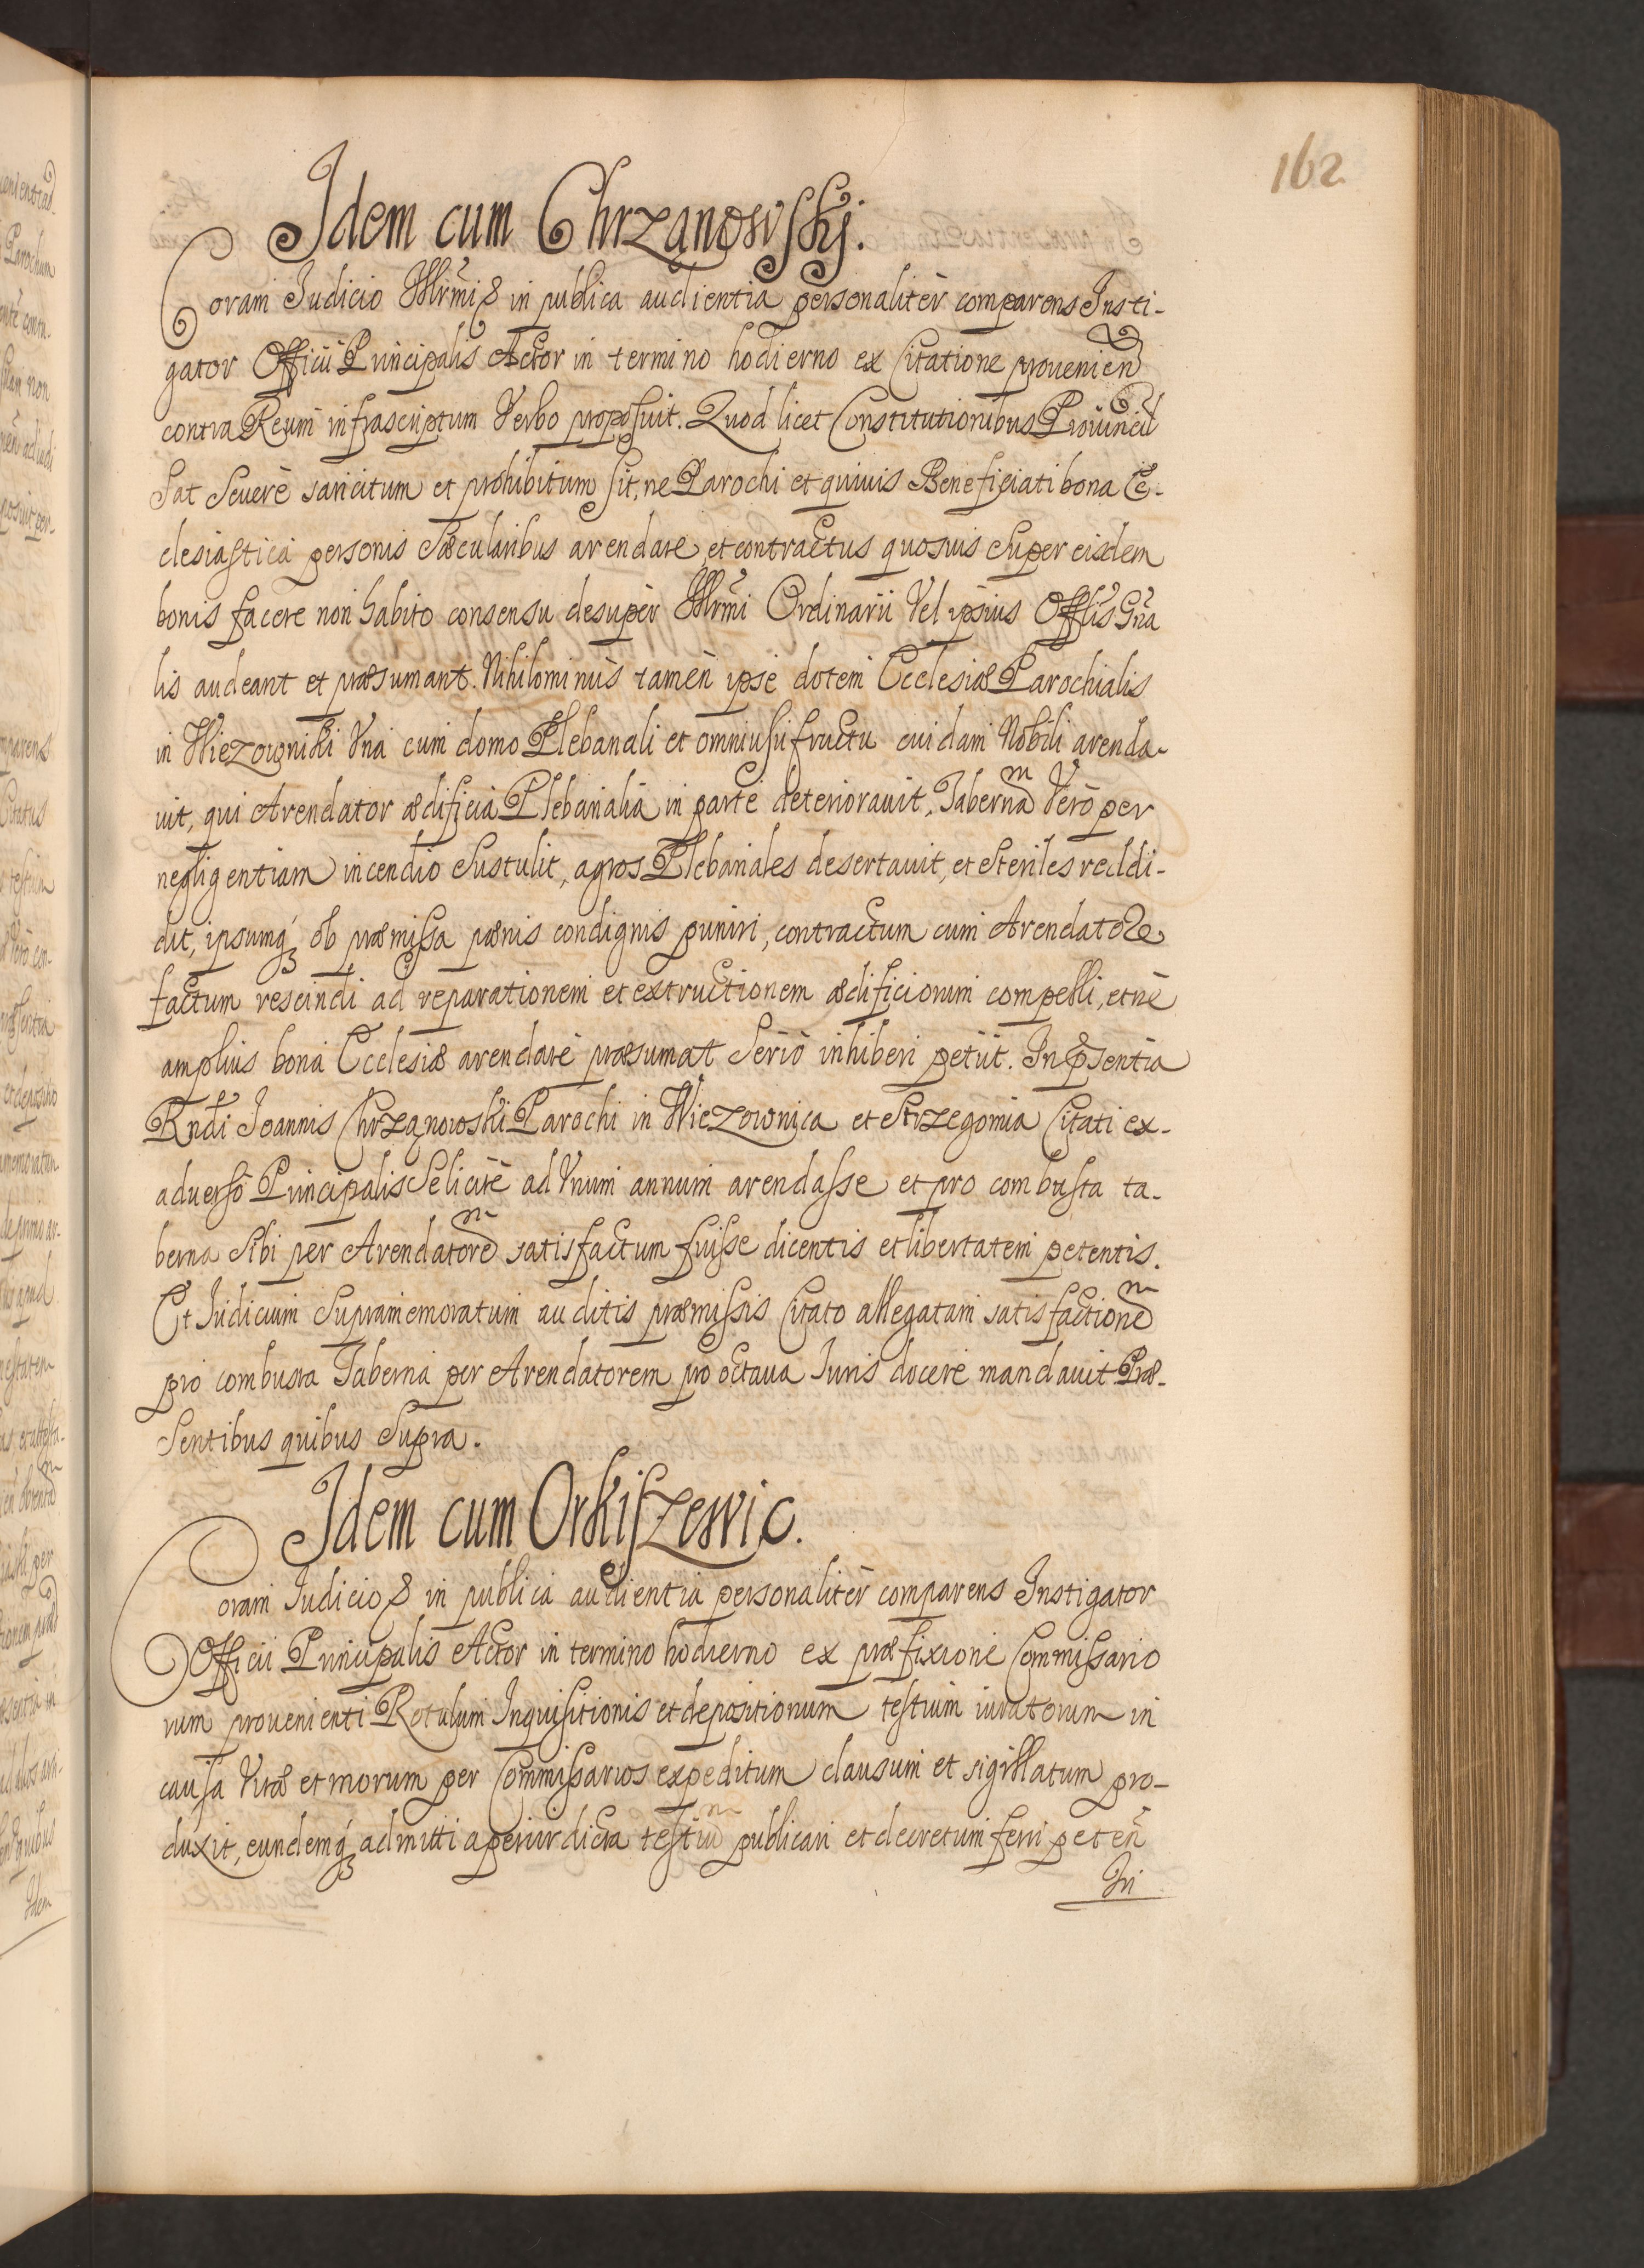 162
Idem cum Chrzanowskj.
Coram Iudicio Illrm̃i & in publica audientia personalitèr comparens Insti-
gator Officii Principalis Actor in termino hodierno ex Citatione prouenien
contra Reum infrascriptum Verbo proposuit. Quod licet Constitutionibus Prouincil
Sat Seuerè sancitum et prohibitum sit, ne Parochi et quiuis Beneficiati bona Ec-
clesiastica personis Sæcularibus arendare, et contractus quosuis Super eisdem
bonis facere non habito consensu desupèr Illrm̃i Ordinarii Vel ipsius Offlis Gña
lis audeant et præsumant. Nihilominùs tamèn ipse dotem Ecclesiæ Parochialis
in Wiezowniki Vna cum domo Plebanali et omniusufructu cuidam Nobili arenda-
uit, qui Arendator ædificia Plebanalia in parte deteriorauit, Tabernam Verò per
negligentiam incendio Sustulit, agros Plebanales desertauit, et Steriles reddi-
dit, ipsumq́ ob præmissa pænis condignis puniri, contractum cum Arendatore
factum rescindi ad reparationem et extructionem ædificiorum compelli, et nè
amplius bona Ecclesiæ arendare præsumat Seriò inhiberi petiit. In p̃sentia
Rndi Ioannis Chrzanowski Parochi in Wiezownica et Strzegomia Citati ex-
aduersò Principalis Se licitè ad Vnum annum arendasse et pro combusta ta-
berna Sibi per Arendatorem satisfactum fuisse dicentis et libertatem petentis.
Et Iudicium Supramemoratum auditis præmissis Citato allegatam satisfactionem
pro combusta Taberna per Arendatorem pro octaua Iuris docere mandauit Præ-
Sentibus quibus Supra.
Idem cum Orkiszewic.
Coram Iudicio & in publica audientia personalitèr comparens Instigator
Officii Principalis Actor in termino hodierno ex præfixione Commissario
rum prouenienti Rotulum Inquisitionis et depositionum testium iuratorum in
causa Vitæ et morum per Commissarios expeditum clausum et sigillatum pro-
duxit, eundemq́ admitti aperiri dicta testium publicari et decretum ferri peteñ
In